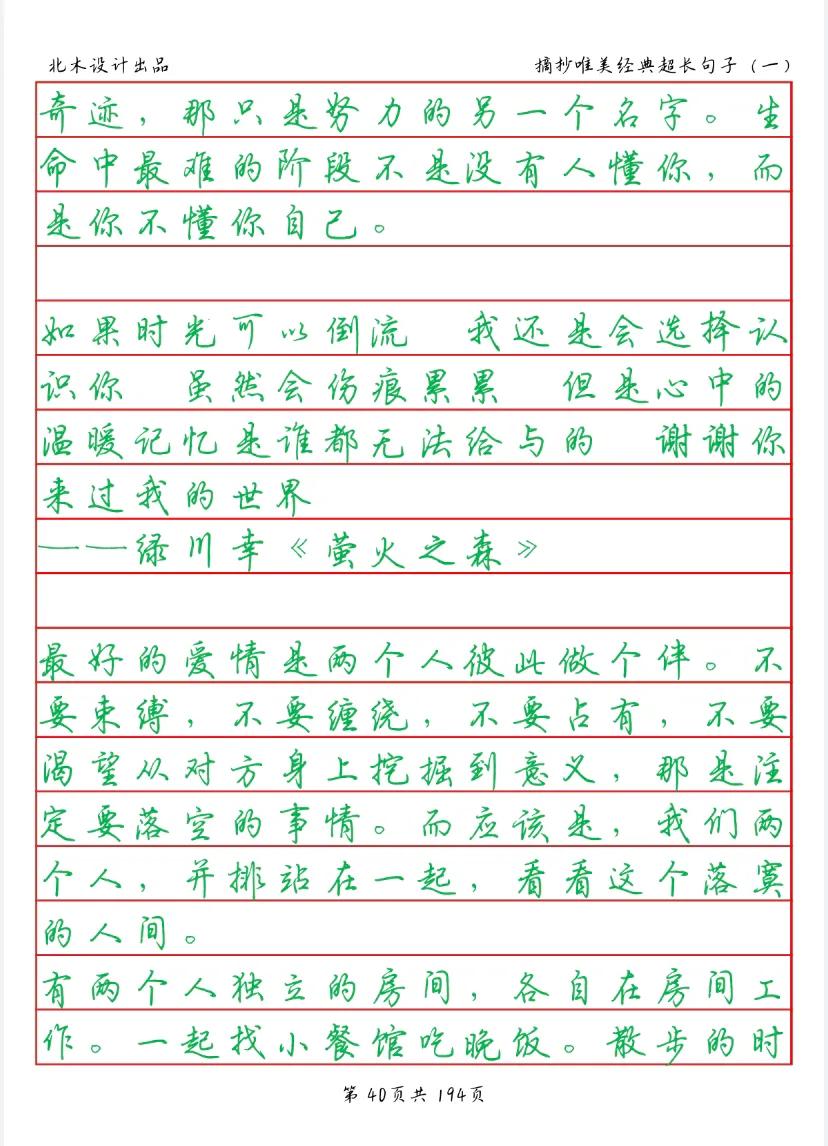 北木设计出品 摘抄唯美经典超长句子（一）
奇迹，那只是努力的另一个名字。生
命中最难的阶段不是没有人懂你，而
是你不懂你自己。
如果时光可以倒流 我还是会选择认
识你 虽然会伤痕累累 但是心中的
温暖记忆是谁都无法给与的 谢谢你
来过我的世界
——绿川幸《萤火之森》
最好的爱情是两个人彼此做个伴。不
要束缚，不要缠绕，不要占有，不要
渴望从对方身上挖掘到意义，那是注
定要落空的事情。而应该是，我们两
个人，并排站在一起，看看这个落寞
的人间。
有两个人独立的房间，各自在房间工
作。一起找小餐馆吃晚饭。散步的时
第 40页共 194页